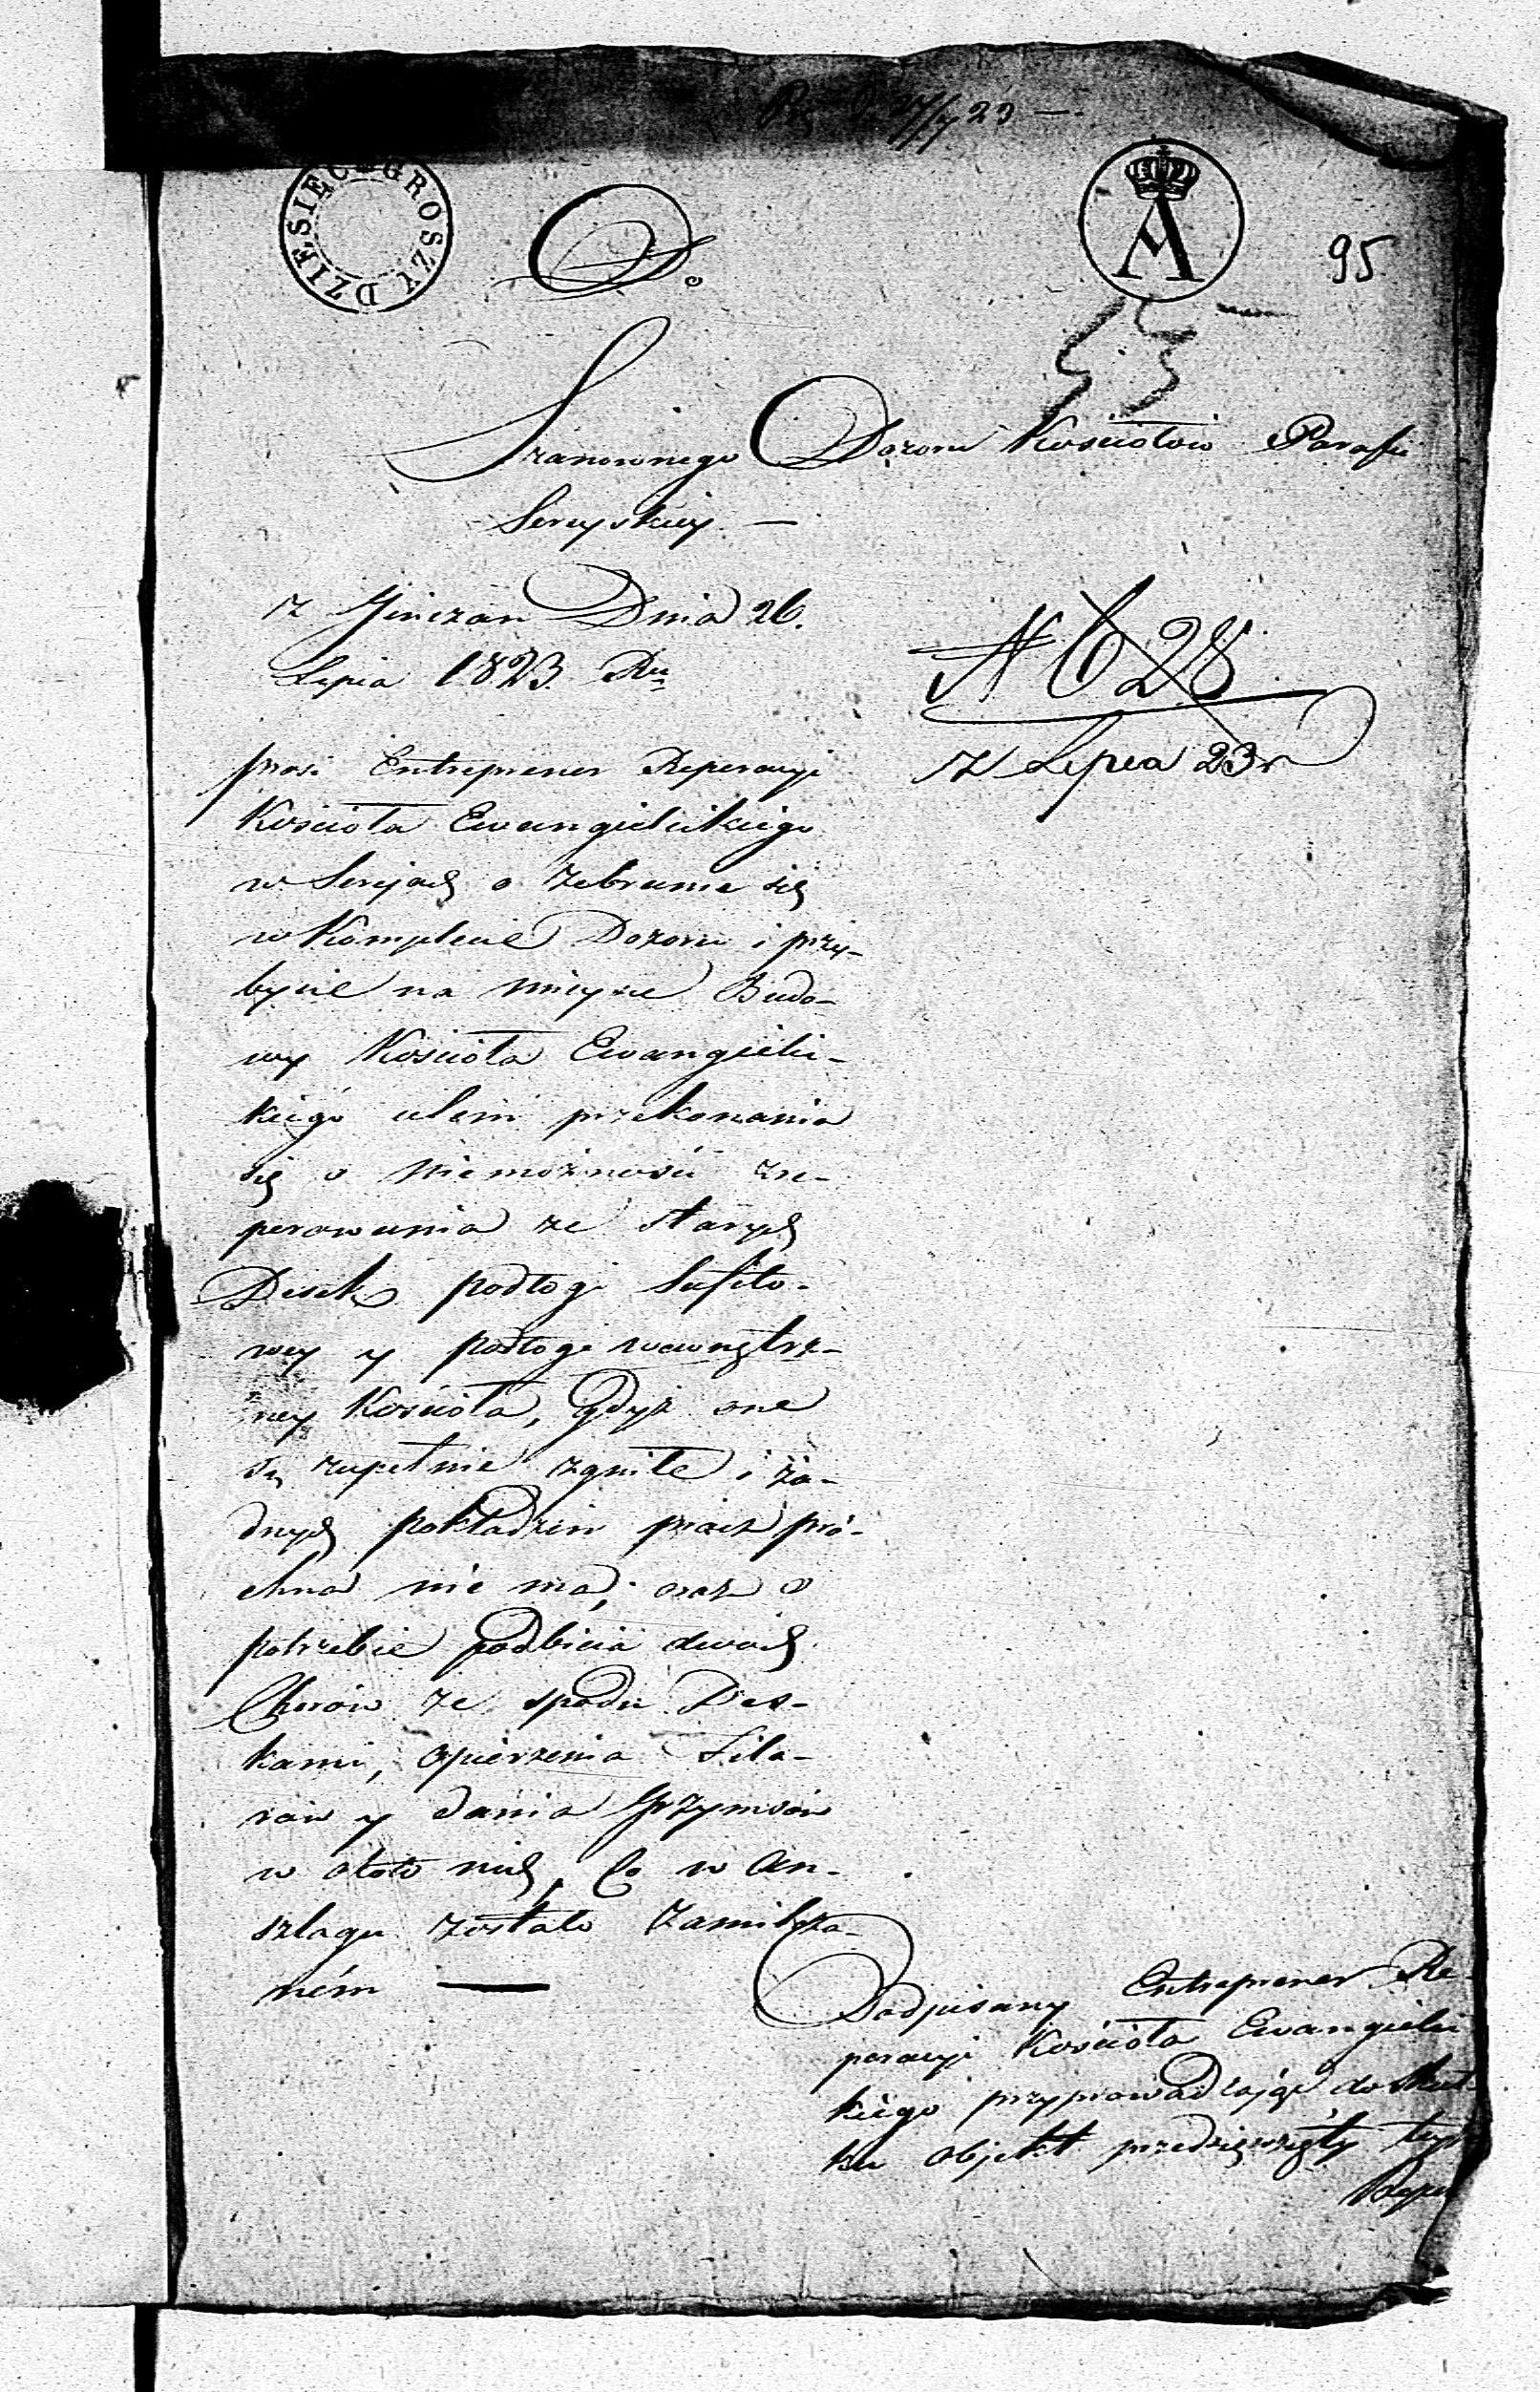 27/7 23 —
DZIESIĘĆ GROSZY
A
95
Do
53
Szanownego Dozoru Kościołów Parafii
Sereyskiey. —
z Dnia 26.
Lipca 1823. Ru
N 628
Lipca 23 r
prosi Entreprener Reperacyi
Kościoła Ewangielickiego
w Serejach o zebranie się
w Komplecie Dozoru i przy-
bycie na mieysce Budo-
wy Kościoła Ewangieli-
kiego celem przekonania
się o niemożności zre-
perowania ze starych
Desek podłogi Sufito-
wey y podłogi wewnętrz-
ney Kościoła, Gdyż one
są zupełnie zgniłe i ża-
dnych pokładzin prócz pró-
chna nie ma; oraz o
potrzebie podbicia dwóch
Chorów ze spodu Des-
kami, opierzenia Fila-
rów y dania Grzymsów
w około nich, Co w An-
szlagu zostało zamilcza-
ném —
Podpisany Entreprener Re-
peracyi Kościoła Ewangieli
kiego przyprowadzając do skut
ku objekt przedsięwzięty tey
Repe